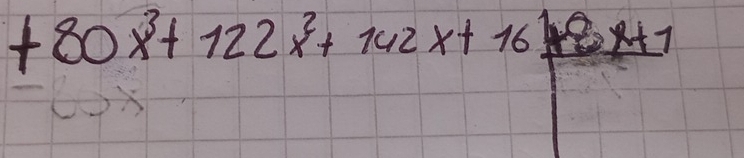 +80x³+122x²+142x+16 +8x+1
-80x